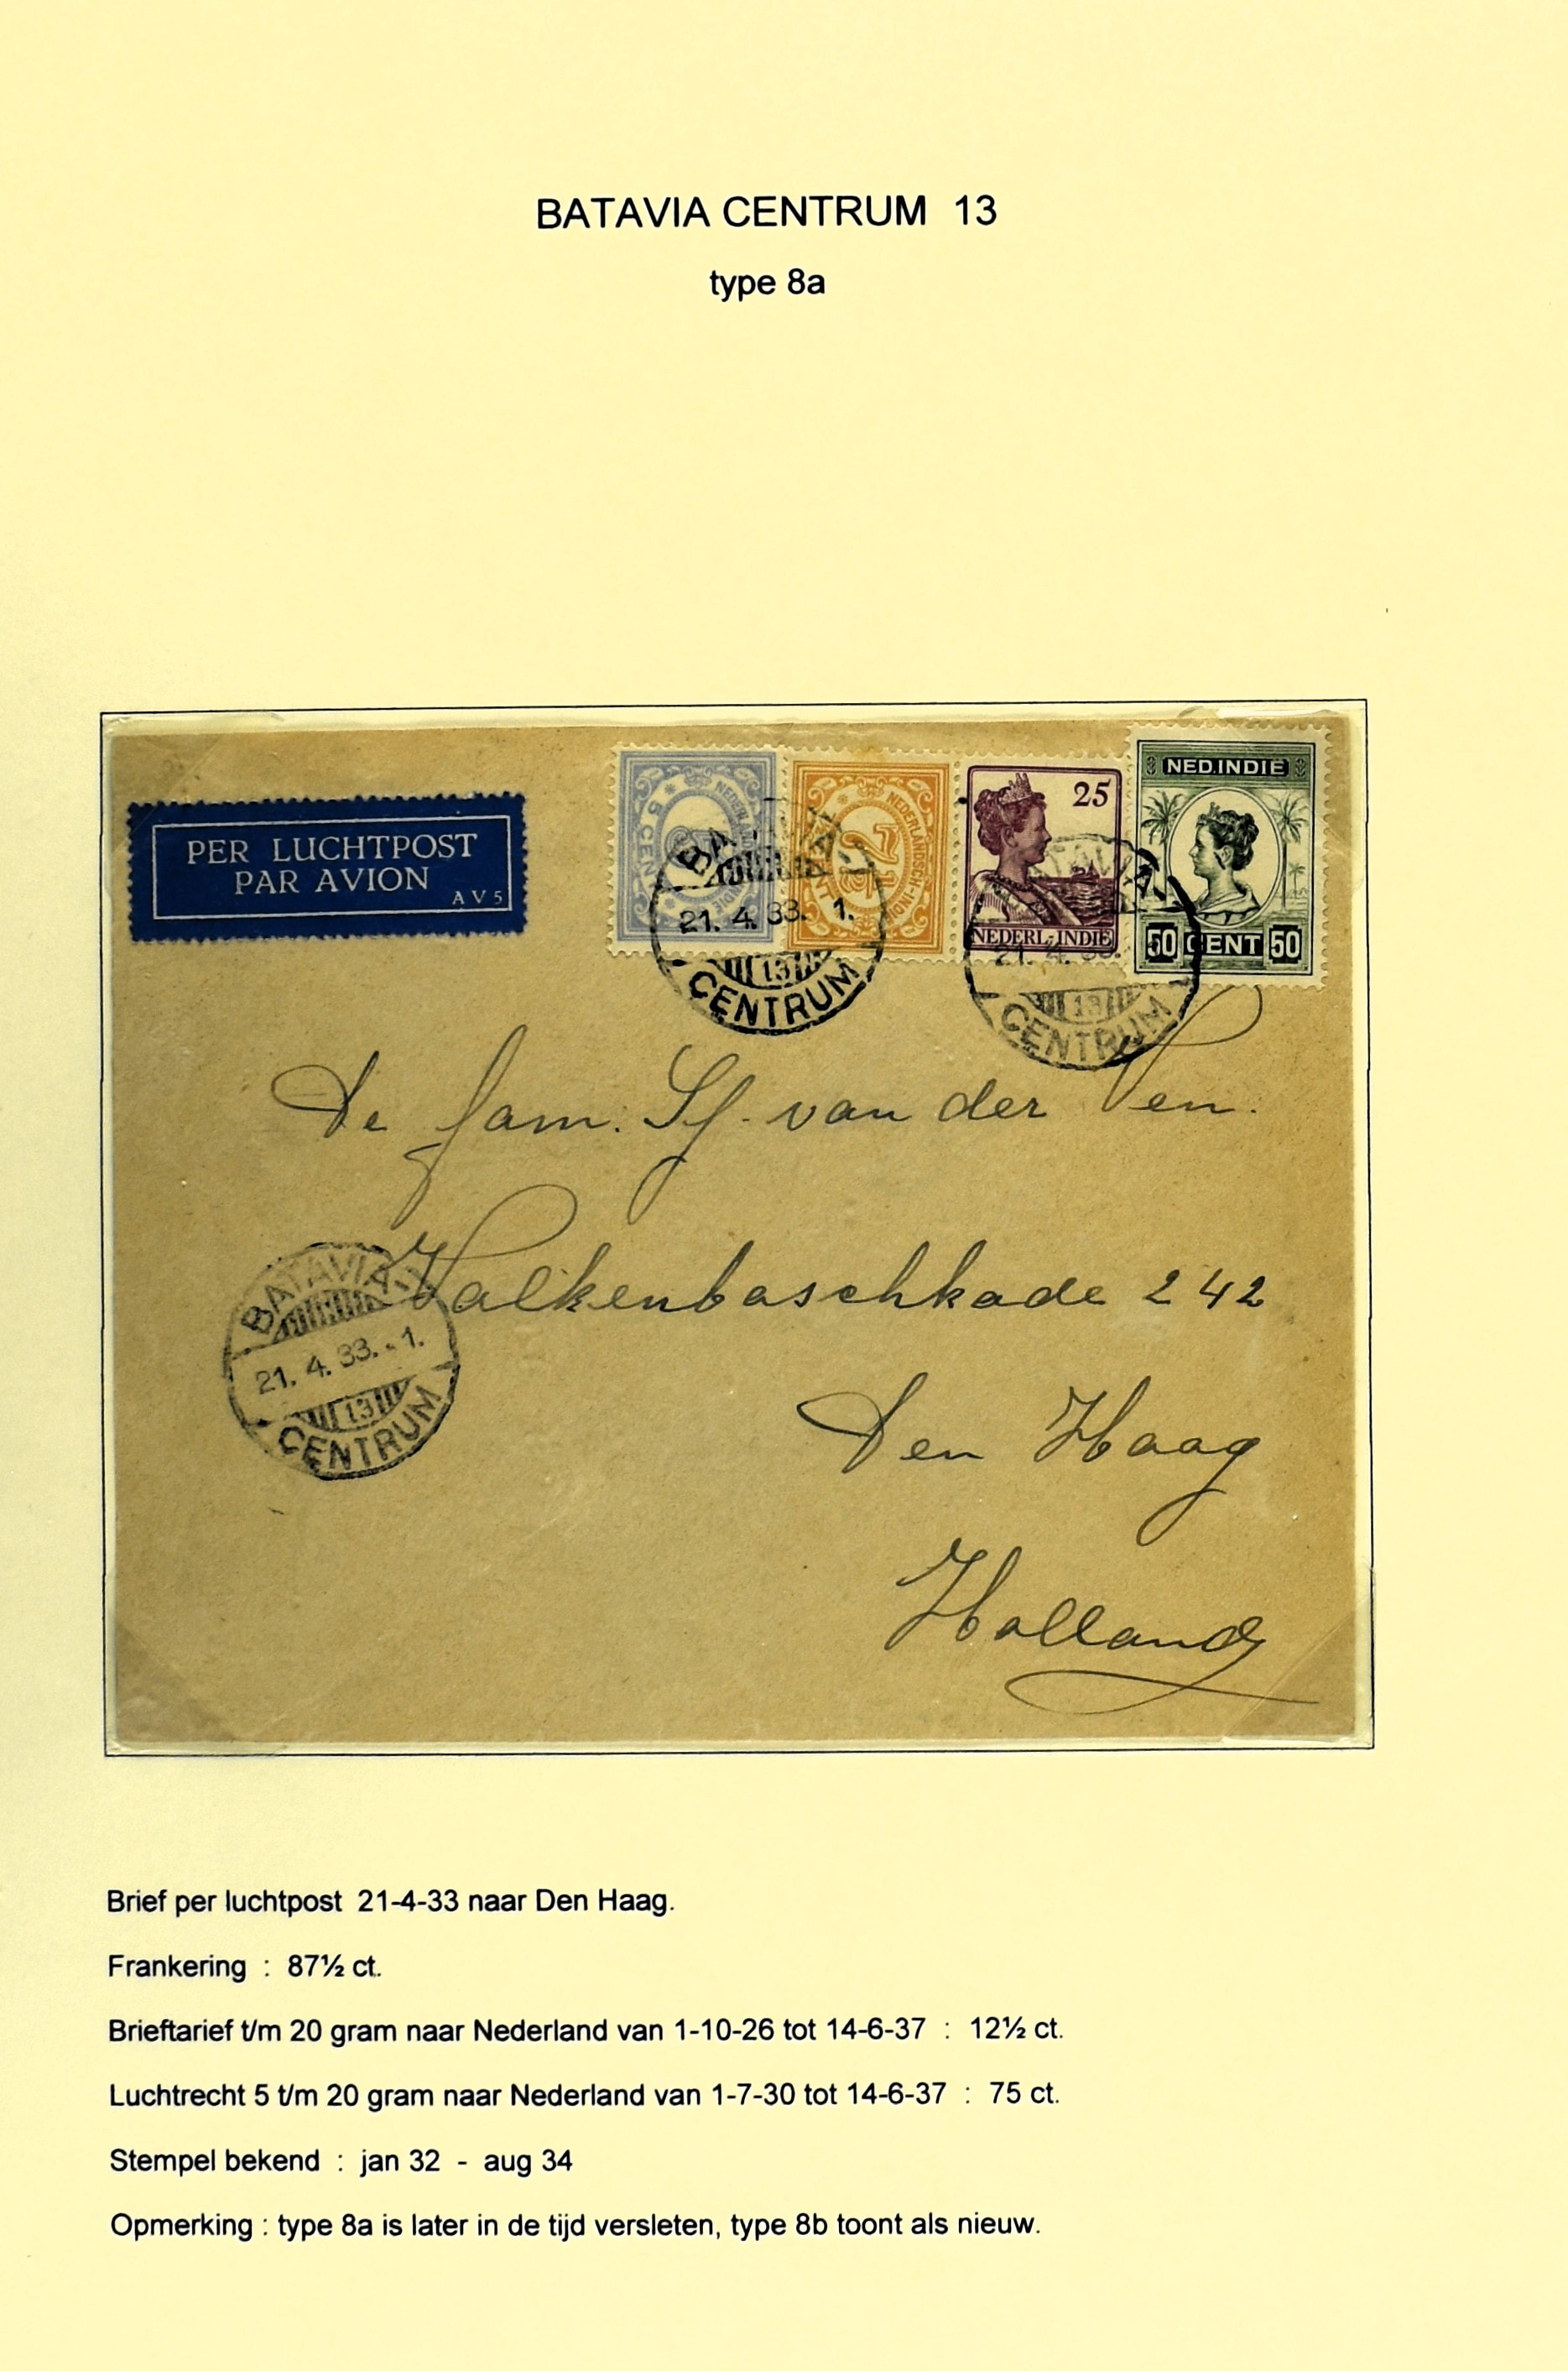 BATAVIA CENTRUM 13
type 8a
PER LUCHTPOST
PAR AVION
AV5
5 CENT
NEDERLANDSCH-INDIE
25
NEDERL-INDIE
NED.INDIE
50 CENT 50
BATAVIA
21. 4. 33. 1.
13
CENTRUM
BATAVIA
21. 4. 33.
13
CENTRUM
De fam. Sf. van der Pen.
Valkenboschkade 242
Den Haag
Holland
BATAVIA
21. 4. 33. - 1.
13
CENTRUM
Brief per luchtpost 21-4-33 naar Den Haag.
Frankering : 87½ ct.
Brieftarief t/m 20 gram naar Nederland van 1-10-26 tot 14-6-37 : 12½ ct.
Luchtrecht 5 t/m 20 gram naar Nederland van 1-7-30 tot 14-6-37 : 75 ct.
Stempel bekend : jan 32 - aug 34
Opmerking : type 8a is later in de tijd versleten, type 8b toont als nieuw.